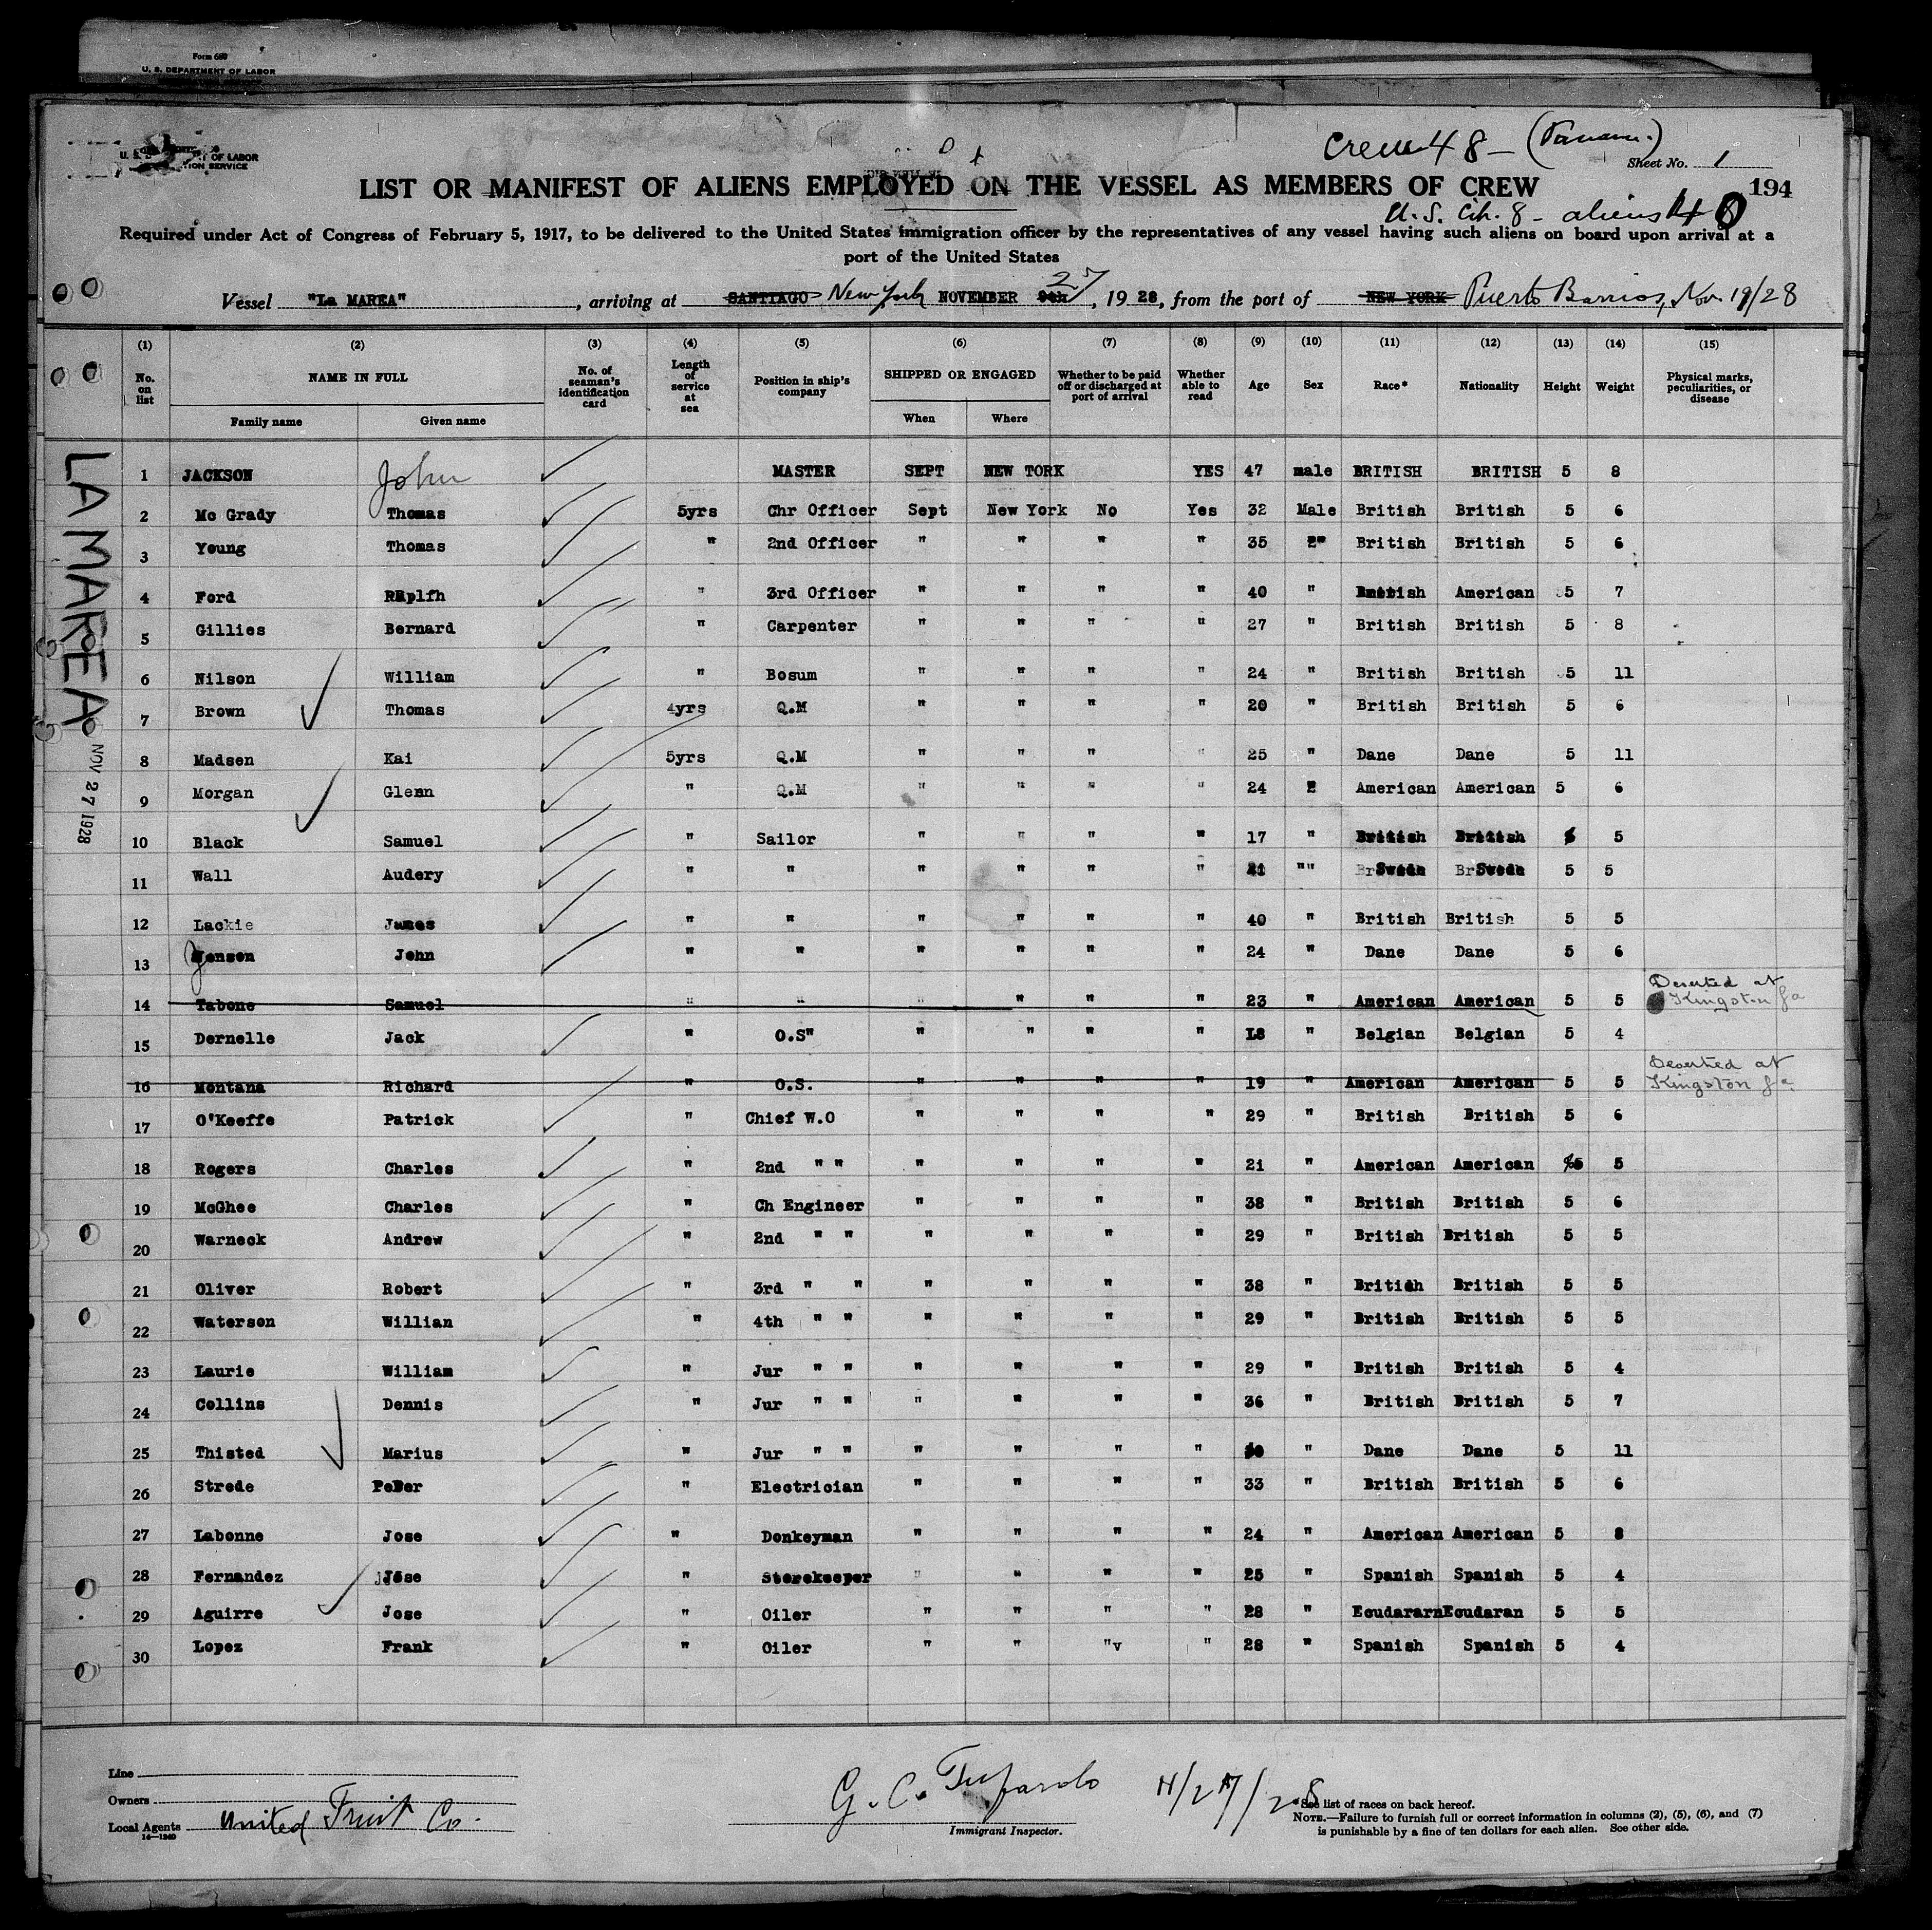 Form 680
U. S. DEPARTMENT OF LABOR
OF LABOR
SERVICE
Crew 48 - (Panama.)
Sheet No. 1
LIST OR MANIFEST OF ALIENS EMPLOYED ON THE VESSEL AS MEMBERS OF CREW
194
U. S. Cit. 8 - aliens 40
Required under Act of Congress of February 5, 1917, to be delivered to the United States immigration officer by the representatives of any vessel having such aliens on board upon arrival at a
port of the United States
Vessel "La MAREA", arriving at SANTIAGO New York NOVEMBER 9th 27, 19 28, from the port of NEW YORK Puerto Barrios, Nov. 19/28
(1) (2) (3) (4) (5) (6) (7) (8) (9) (10) (11) (12) (13) (14) (15)
No. on list NAME IN FULL No. of seaman's identification card Length of service at sea Position in ship's company SHIPPED OR ENGAGED Whether to be paid off or discharged at port of arrival Whether able to read Age Sex Race* Nationality Height Weight Physical marks, peculiarities, or disease
Family name Given name When Where
LA MAREA
NOV 27 1928
1 JACKSON John MASTER SEPT NEW YORK YES 47 male BRITISH BRITISH 5 8
2 Mc Grady Thomas 5yrs Chr Officer Sept New York No Yes 32 Male British British 5 6
3 Young Thomas " 2nd Officer " " " " 35 " British British 5 6
4 Ford Raplfh " 3rd Officer " " " " 40 " British American 5 7
5 Gillies Bernard " Carpenter " " " " 27 " British British 5 8
6 Nilson William " Bosum " " " " 24 " British British 5 11
7 Brown Thomas 4yrs Q.M " " " " 20 " British British 5 6
8 Madsen Kai 5yrs Q.M " " " " 25 " Dane Dane 5 11
9 Morgan Glenn " Q.M " " " " 24 American American 5 6
10 Black Samuel " Sailor " " " " 17 " British British 5
11 Wall Audery " " " " " " 21 "" Swede Swede 5 5
12 Lackie James " " " " " " 40 " British British 5 5
13 Jensen John " " " " " " 24 " Dane Dane 5 6
14 Tabone Samuel " " " " " " 23 " American American 5 5 Deserted at Kingston Ja
15 Dernelle Jack " O.S" " " " " 18 " Belgian Belgian 5 4
16 Montana Richard " O.S. " " " " 19 " American American 5 5 Deserted at Kingston Ja
17 O'Keeffe Patrick " Chief W.O " " " " 29 " British British 5 6
18 Rogers Charles " 2nd " " " " " " 21 " American American 5 5
19 McGhee Charles " Ch Engineer " " " " 38 " British British 5 6
20 Warneck Andrew " 2nd " " " " " " 29 " British British 5 5
21 Oliver Robert " 3rd " " " " " " 38 " British British 5 5
22 Waterson Willian " 4th " " " " " " 29 " British British 5 5
23 Laurie William " Jur " " " " " " 29 " British British 5 4
24 Collins Dennis " Jur " " " " " " 36 " British British 5 7
25 Thisted Marius " Jur " " " " " " " Dane Dane 5 11
26 Strede Peter " Electrician " " " " 33 " British British 5 6
27 Labonne Jose " Donkeyman " " " " 24 " American American 5 8
28 Fernandez Jose " Storekeeper " " " " 25 " Spanish Spanish 5 4
29 Aguirre Jose " Oiler " " " " 28 " Ecudararn Ecudaran 5 5
30 Lopez Frank " Oiler " " "v " 28 " Spanish Spanish 5 4
Line
Owners
Local Agents United Fruit Co.
14—1240
G. C. Tufarolo 11/27/28
Immigrant Inspector.
See list of races on back hereof.
NOTE.—Failure to furnish full or correct information in columns (2), (5), (6), and (7)
is punishable by a fine of ten dollars for each alien. See other side.